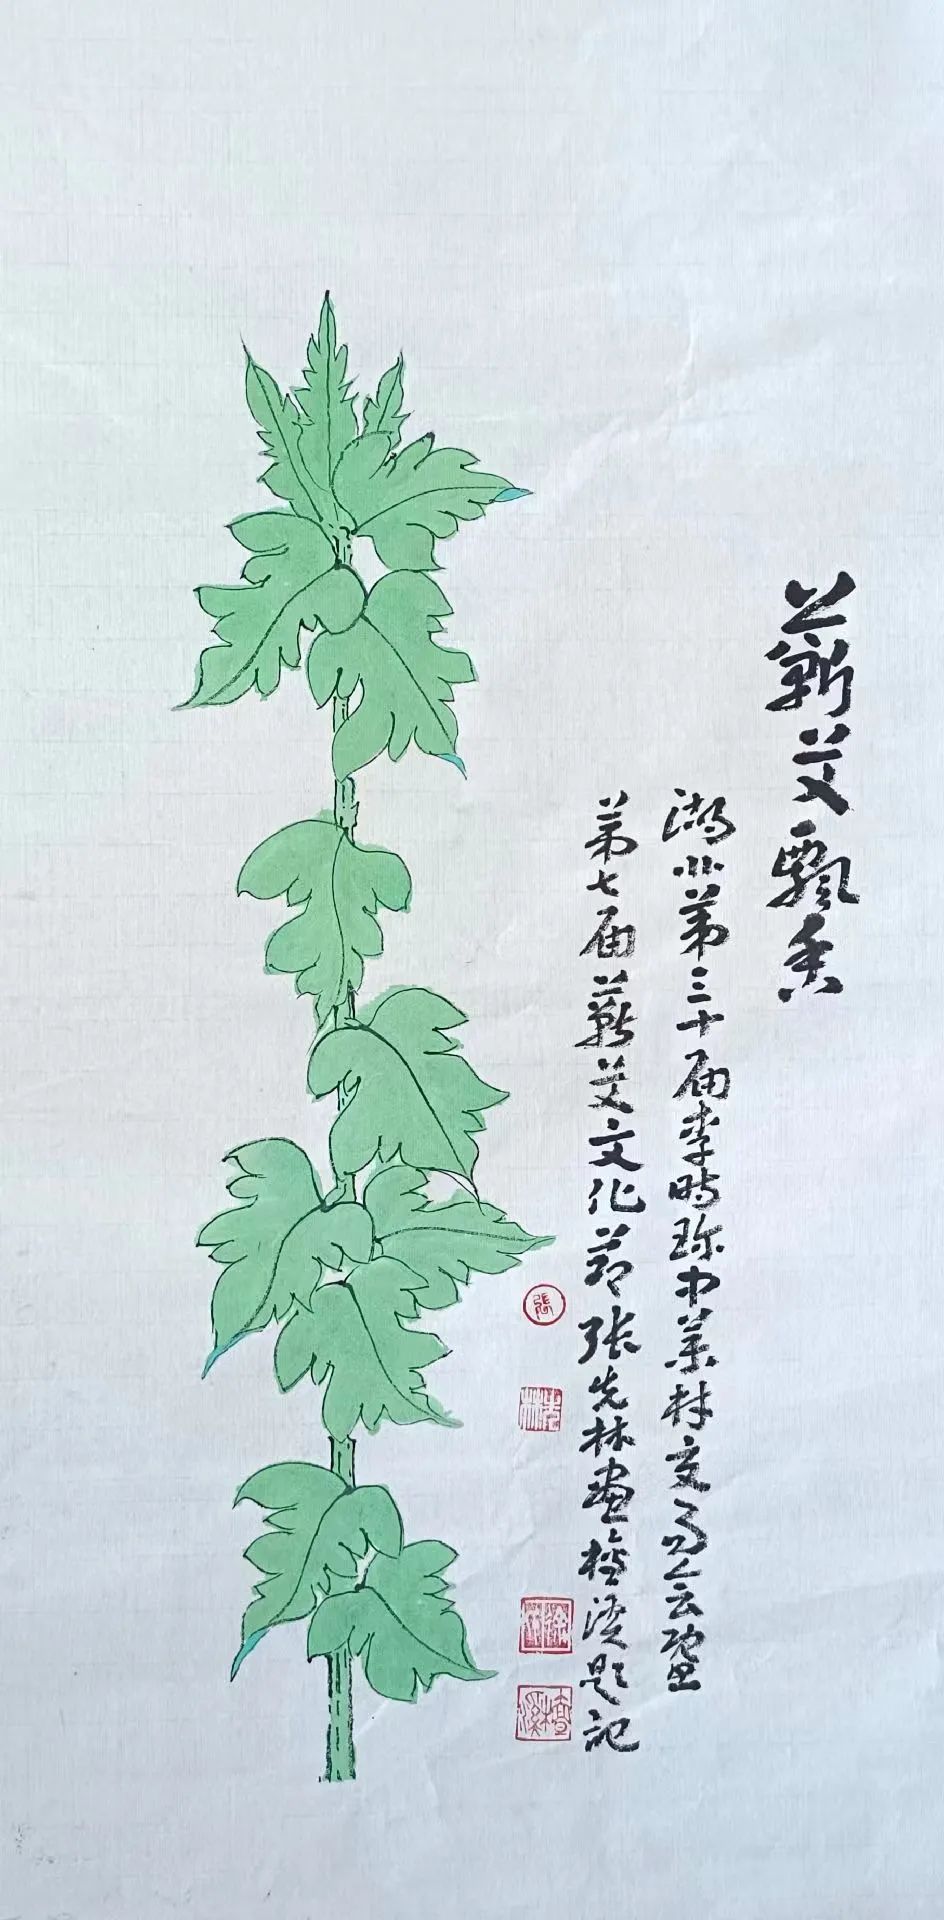 蘄艾飄香
湖北第三十届李時珍中药材交易会暨
第七届蘄艾文化节张先林画檀溪题记
張
先林
檀溪